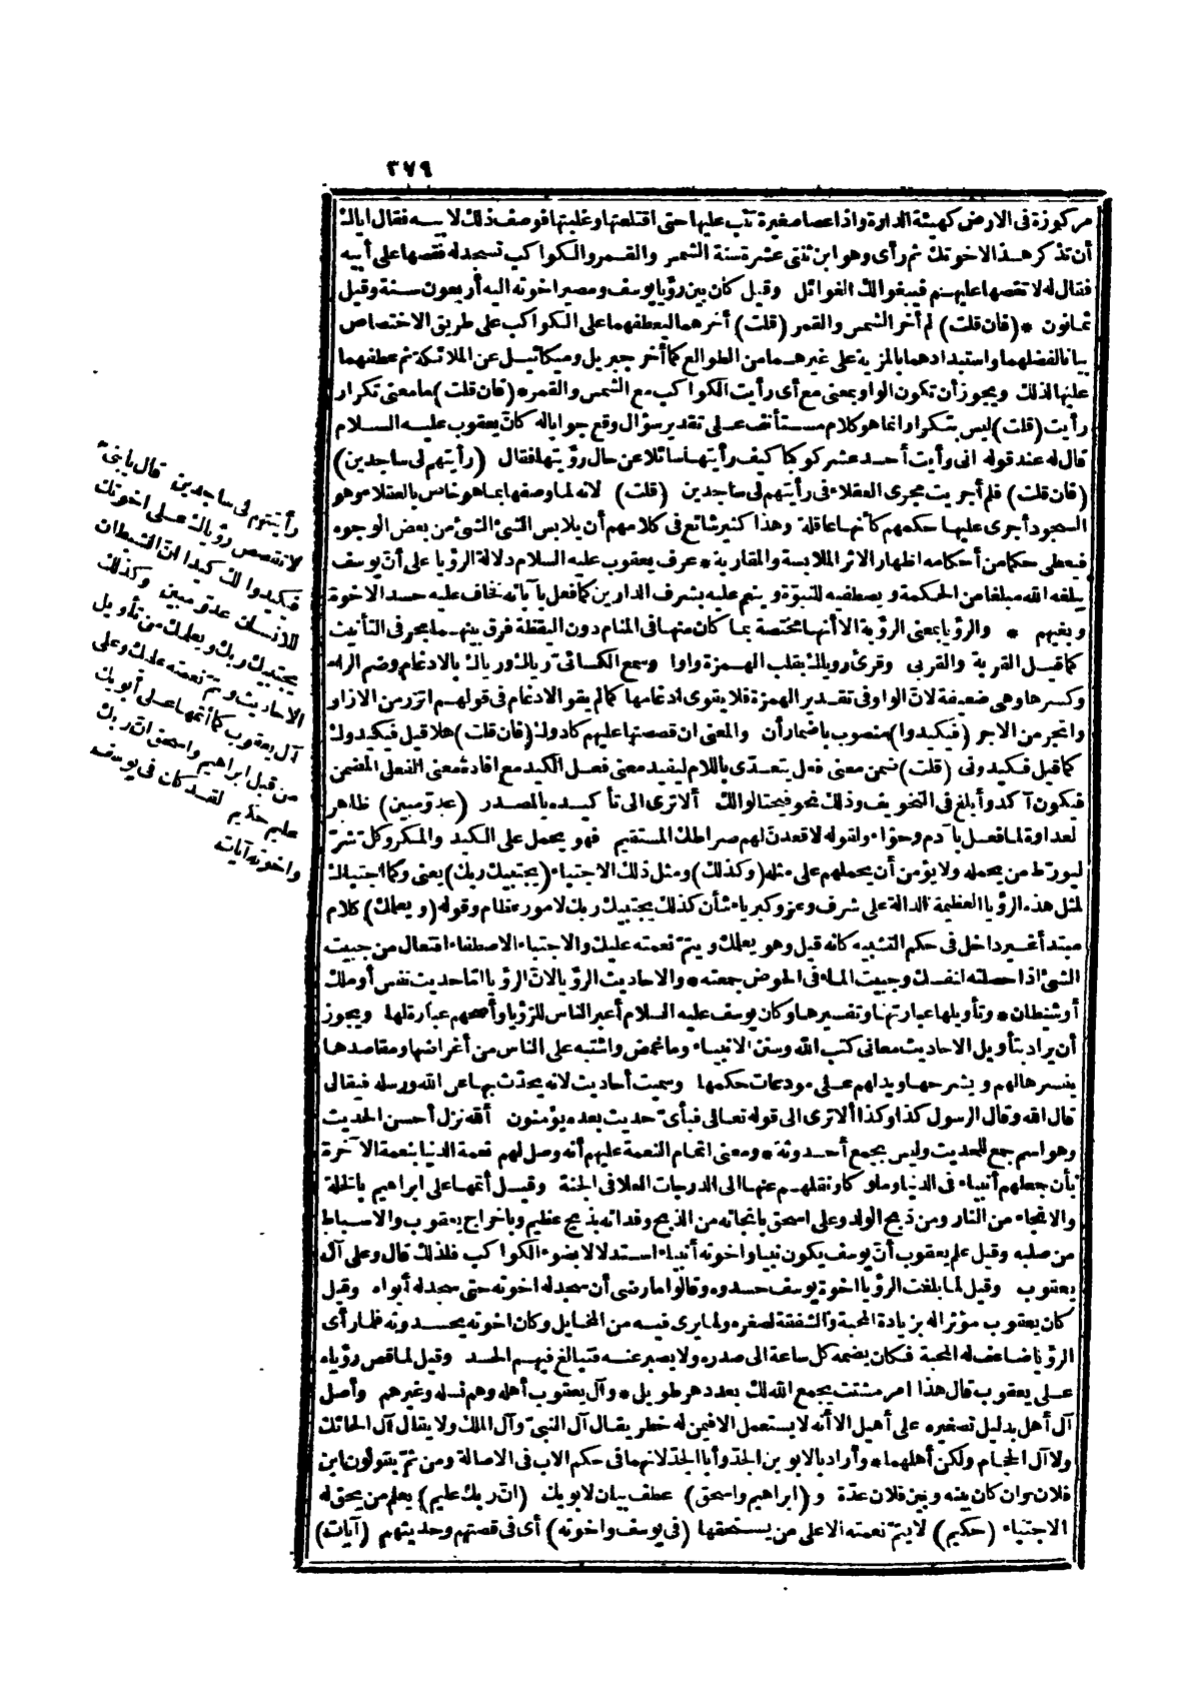 ٣٧٩
مركوزة فى الارض كهيئة الدارة واذا عصا صغيرة تثب عليها حتى اقتلعتها وغلبتها فوصف ذلك لابيه فقال اياك
أن تذكر هذا لاخوتك ثم رأى وهو ابن ثنتى عشرة سنة الشمس والقمر والكواكب تسجد له فقصها على أبيه
فقال له لا تقصها عليهم فيبغوا لك الغوائل وقيل كان بين رؤيا يوسف ومصير اخوته اليه أربعون سنة وقيل
ثمانون * (فان قلت) لم أخر الشمس والقمر (قلت) أخرهما ليعطفهما على الكواكب على طريق الاختصاص
بيانا لفضلهما واستبدادهما بالمزية على غيرهما من الطوالع كما أخر جبريل وميكائيل عن الملائكة ثم عطفهما
عليها لذلك ويجوز أن تكون الواو بمعنى مع أى رأيت الكواكب مع الشمس والقمر * (فان قلت) ما معنى تكرار
رأيت (قلت) ليس بتكرار انما هو كلام مستأنف على تقدير سؤال وقع جوابا له كأن يعقوب عليه السلام
قال له عند قوله انى رأيت أحد عشر كوكبا كيف رأيتها سائلا عن حال رؤيتها فقال (رأيتهم لى ساجدين)
(فان قلت) فلم أجريت مجرى العقلاء فى رأيتهم لى ساجدين (قلت) لانه لما وصفها بما هو خاص بالعقلاء وهو
السجود أجرى عليها حكمهم كأنها عاقلة وهذا كثير شائع فى كلامهم أن يلابس الشئ الشئ من بعض الوجوه
فيعطى حكما من أحكامه اظهارا لاثر الملابسة والمقاربة * عرف يعقوب عليه السلام دلالة الرؤيا على أن يوسف
يبلغه الله مبلغا من الحكمة ويصطفيه للنبوّة وينعم عليه بشرف الدارين كما فعل بآبائه فخاف عليه حسد الاخوة
وبغيهم * والرؤيا بمعنى الرؤية الا أنها مختصة بما كان منها فى المنام دون اليقظة فرق بينهما بحرفى التأنيث
كما قيل القربة والقربى وقرئ روياك بقلب الهمزة واوا وسمع الكسائىّ رياك ورياك بالادغام وضم الراء
وكسرها وهى ضعيفة لان الواو فى تقدير الهمزة فلا يقوى ادغامها كما لم يقو الادغام فى قولهم اتزر من الازار
واتجر من الاجر (فيكيدوا) منصوب باضمار أن والمعنى ان قصصتها عليهم كادوك (فان قلت) هلا قيل فيكيدوك
كما قيل فكيدونى (قلت) ضمن معنى فعل يتعدّى باللام ليفيد معنى فعل الكيد مع افادة معنى الفعل المضمن
فيكون آكد وأبلغ فى التخويف وذلك نحو فيحتالوا لك ألا ترى الى تأكيده بالمصدر (عدوّ مبين) ظاهر
العداوة لما فعل بآدم وحوّاء ولقوله لاقعدنّ لهم صراطك المستقيم فهو يحمل على الكيد والمكر وكل شرّ
ليورّط من يحمله ولا يؤمن أن يحملهم على مثله (وكذلك) ومثل ذلك الاجتباء (يجتبيك ربك) يعنى وكما اجتباك
لمثل هذه الرؤيا العظيمة الدالة على شرف وعز وكبرياء شأن كذلك يجتبيك ربك لامور عظام وقوله (ويعلمك) كلام
مبتدأ غير داخل فى حكم التشبيه كأنه قيل وهو يعلمك ويتمّ نعمته عليك والاجتباء الاصطفاء افتعال من جبيت
الشئ اذا حصلته لنفسك وجبيت الماء فى الحوض جمعته * والاحاديث الرؤيا لانّ الرؤيا امّا حديث نفس أو ملك
أو شيطان * وتأويلها عبارتها وتفسيرها وكان يوسف عليه السلام أعبر الناس للرؤيا وأصحهم عبارة لها ويجوز
أن يراد بتأويل الاحاديث معانى كتب الله وسنن الانبياء وما غمض واشتبه على الناس من أغراضها ومقاصدها
يفسرها لهم ويشرحها ويدلهم على مودعات حكمها وسميت أحاديث لانه يحدّث بها عن الله ورسله فيقال
قال الله وقال الرسول كذا وكذا ألا ترى الى قوله تعالى فبأىّ حديث بعده يؤمنون ألله نزل أحسن الحديث
وهو اسم جمع للحديث وليس بجمع أحدوثة * ومعنى اتمام النعمة عليهم أنه وصل لهم نعمة الدنيا بنعمة الآخرة
بأن جعلهم أنبياء فى الدنيا وملوكا ونقلهم عنها الى الدرجات العلا فى الجنة وقيل أتمها على ابراهيم بالخلة
والانجاء من النار ومن ذبح الولد وعلى اسحق بانجائه من الذبح وفدائه بذبح عظيم وباخراج يعقوب والاسباط
من صلبه وقيل علم يعقوب أنّ يوسف يكون نبيا واخوته أنبياء استدلالا بضوء الكواكب فلذلك قال وعلى آل
يعقوب وقيل لما بلغت الرؤيا اخوة يوسف حسدوه وقالوا ما رضى أن سجد له اخوته حتى سجد له أبواه وقيل
كان يعقوب مؤثرا له بزيادة المحبة والشفقة لصغره ولما يرى فيه من المخايل وكان اخوته يحسدونه فلما رأى
الرؤيا ضاعف له المحبة فكان يضمه كل ساعة الى صدره ولا يصبر عنه فتبالغ فيهم الحسد وقيل لما قص رؤياه
على يعقوب قال هذا أمر مشتت يجمع الله لك بعد دهر طويل * وآل يعقوب أهله وهم نسله وغيرهم وأصل
آل أهل بدليل تصغيره على أهيل الا أنه لا يستعمل الا فيمن له خطر يقال آل النبىّ وآل الملك ولا يقال آل الحائك
ولا آل الحجام ولكن أهلهما * وأراد بالابوين الجدّ وأبا الجدّ لانهما فى حكم الاب فى الاصالة ومن ثمّ يقولون ابن
فلان وان كان بينه وبين فلان عدّة و (ابراهيم واسحق) عطف بيان لابويك (انّ ربك عليم) يعلم من يحق له
الاجتباء (حكيم) لا يتمّ نعمته الا على من يستحقها (فى يوسف واخوته) أى فى قصتهم وحديثهم (آيات)
رأيتهم لى ساجدين قال يا بنىّ
لا تقصص رؤياك على اخوتك
فيكيدوا لك كيدا انّ الشيطان
للانسان عدوّ مبين وكذلك
يجتبيك ربك ويعلمك من تأويل
الاحاديث ويتمّ نعمته عليك وعلى
آل يعقوب كما أتمها على أبويك
من قبل ابراهيم واسحق انّ ربك
عليم حكيم لقد كان فى يوسف
واخوته آيات